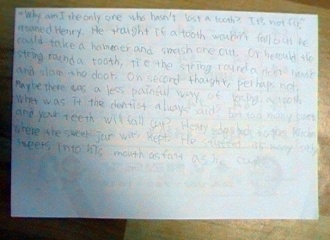 "Why am I the only one who hasn't lost a tooth? It's not fair"
moaned Henry. He thought if a tooth wouldn't fall out he
could take a hammer and smash one out. Or he could tie
string round a tooth, tie the string round a door handle
and slam the door. On second thoughts, perhaps not.
Maybe there was a less painful way of losing a tooth.
What was it the dentist always said? Eat too many sweets
and your teeth will fall out? Henry popped to the kitchen
where the sweet jar was kept. He stuffed as many
sweets into his mouth as fast as he could